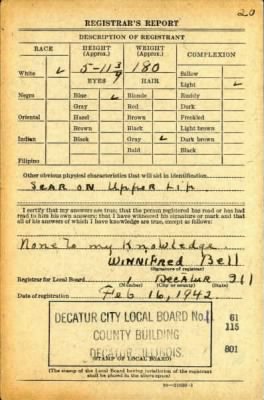 20
REGISTRAR'S REPORT
DESCRIPTION OF REGISTRANT
RACE HEIGHT (Approx.) WEIGHT (Approx.) COMPLEXION
5-11 3/4 180
White ✓ Sallow
EYES HAIR Light ✓
Negro Blue ✓ Blonde Ruddy
Gray Red Dark
Oriental Hazel Brown Freckled
Brown Black Light brown
Indian Black Gray ✓ Dark brown
Bald Black
Filipino
Other obvious physical characteristics that will aid in identification
Scar on Upper Lip
I certify that my answers are true; that the person registered has read or has had
read to him his own answers; that I have witnessed his signature or mark and that
all of his answers of which I have knowledge are true, except as follows:
None to my Knowledge.
Winnifred Bell
(Signature of registrar)
Registrar for Local Board 1 Decatur Ill
(Number) (City or county) (State)
Date of registration Feb 16, 1942
DECATUR CITY LOCAL BOARD No. 1 61
COUNTY BUILDING 115
DECATUR, ILLINOIS. 801
(STAMP OF LOCAL BOARD)
(The stamp of the Local Board having jurisdiction of the registrant
shall be placed in the above space)